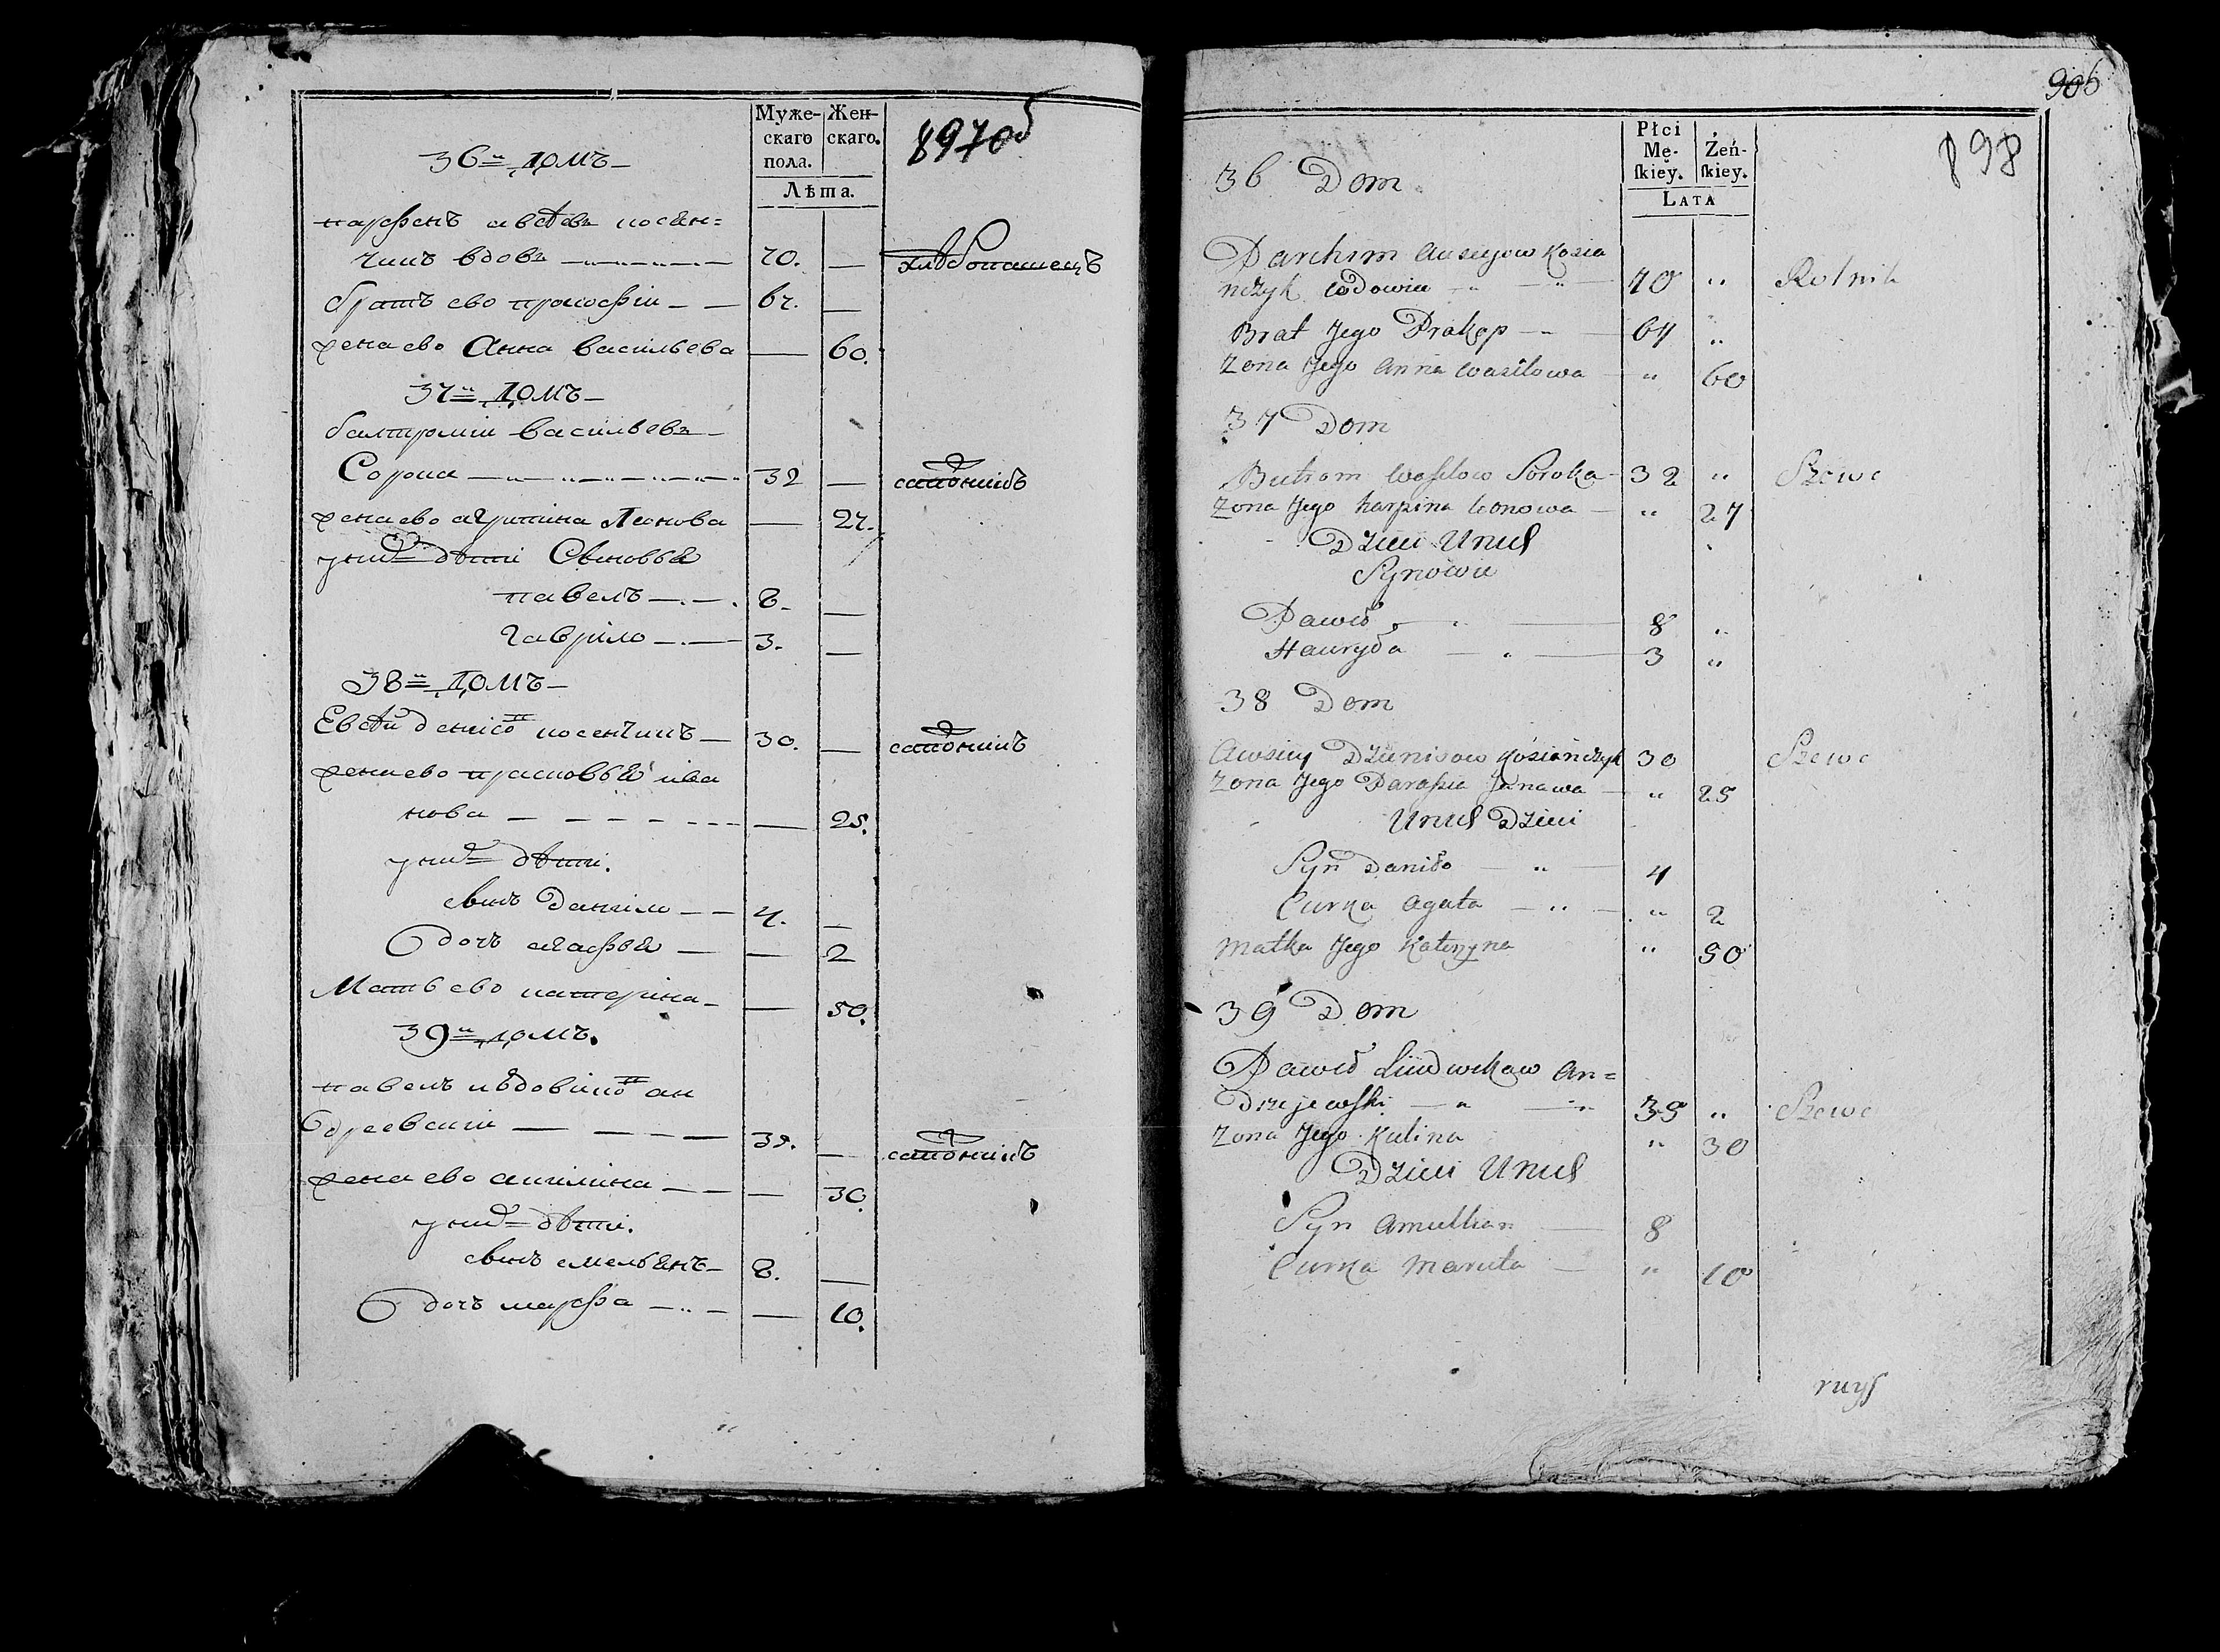 Муже-
скаго
пола.
Жен-
скаго.
Лѣта.
897об
36й домъ
парфенъ авсѣевъ косян=
чикъ вдовъ 70. — хлѣбопашецъ
братъ ево прокофіи 67. —
жена ево Анна васильева — 60.
37й домъ
балтромѣи васильевъ
Сорока 32 — сапожникъ
жена ево агрипина Леонова — 27.
у нихъ дѣти Сыновья
павелъ 8. —
гаврило 3. —
38й домъ
Евсѣй денисовъ косенчикъ 30. — сапожникъ
жена ево прасковья ива
нова — 25.
у нихъ дѣти.
сынъ данило 4. —
дочь агафья — 2
Мать ево катерина — 50.
39й домъ.
павелъ ан
дреевскіи 35. — сапожникъ
жена ево акилина — 30.
у нихъ дѣти.
сынъ емельянъ 8. —
дочь марфа — 10.
906
Płci
Mę-
ſkiey.
Żeń-
ſkiey.
LATA
898
36 Dom
Parchim Auseyow Kosia
nczyk Wdowiec 70 " Rolnik
Brat Jego Prakop 67 "
Zona Jego Anna Wasilowa " 60
37 Dom
Butrom Wasilow Soroka 32 " Szewc
Zona Jego harpina Leonowa " 27
Dzieci Unich
Synowie
Paweł 8 "
Hauryła 3 "
38 Dom
Awsiey Dzienisow Kosianczyk 30 Szewc
Zona Jego Parasia Janawa " 25
Unich Dzieci
Syn Daniło " 4
Curka Agata " 2
Matka Jego Kateryna " 50
39 Dom
Paweł Ludwikow An=
Drzejewski 35 " Szewc
Zona Jego Kulina " 30
Dzieci Unich
Syn Amellian 8
Curka Maruta " 10